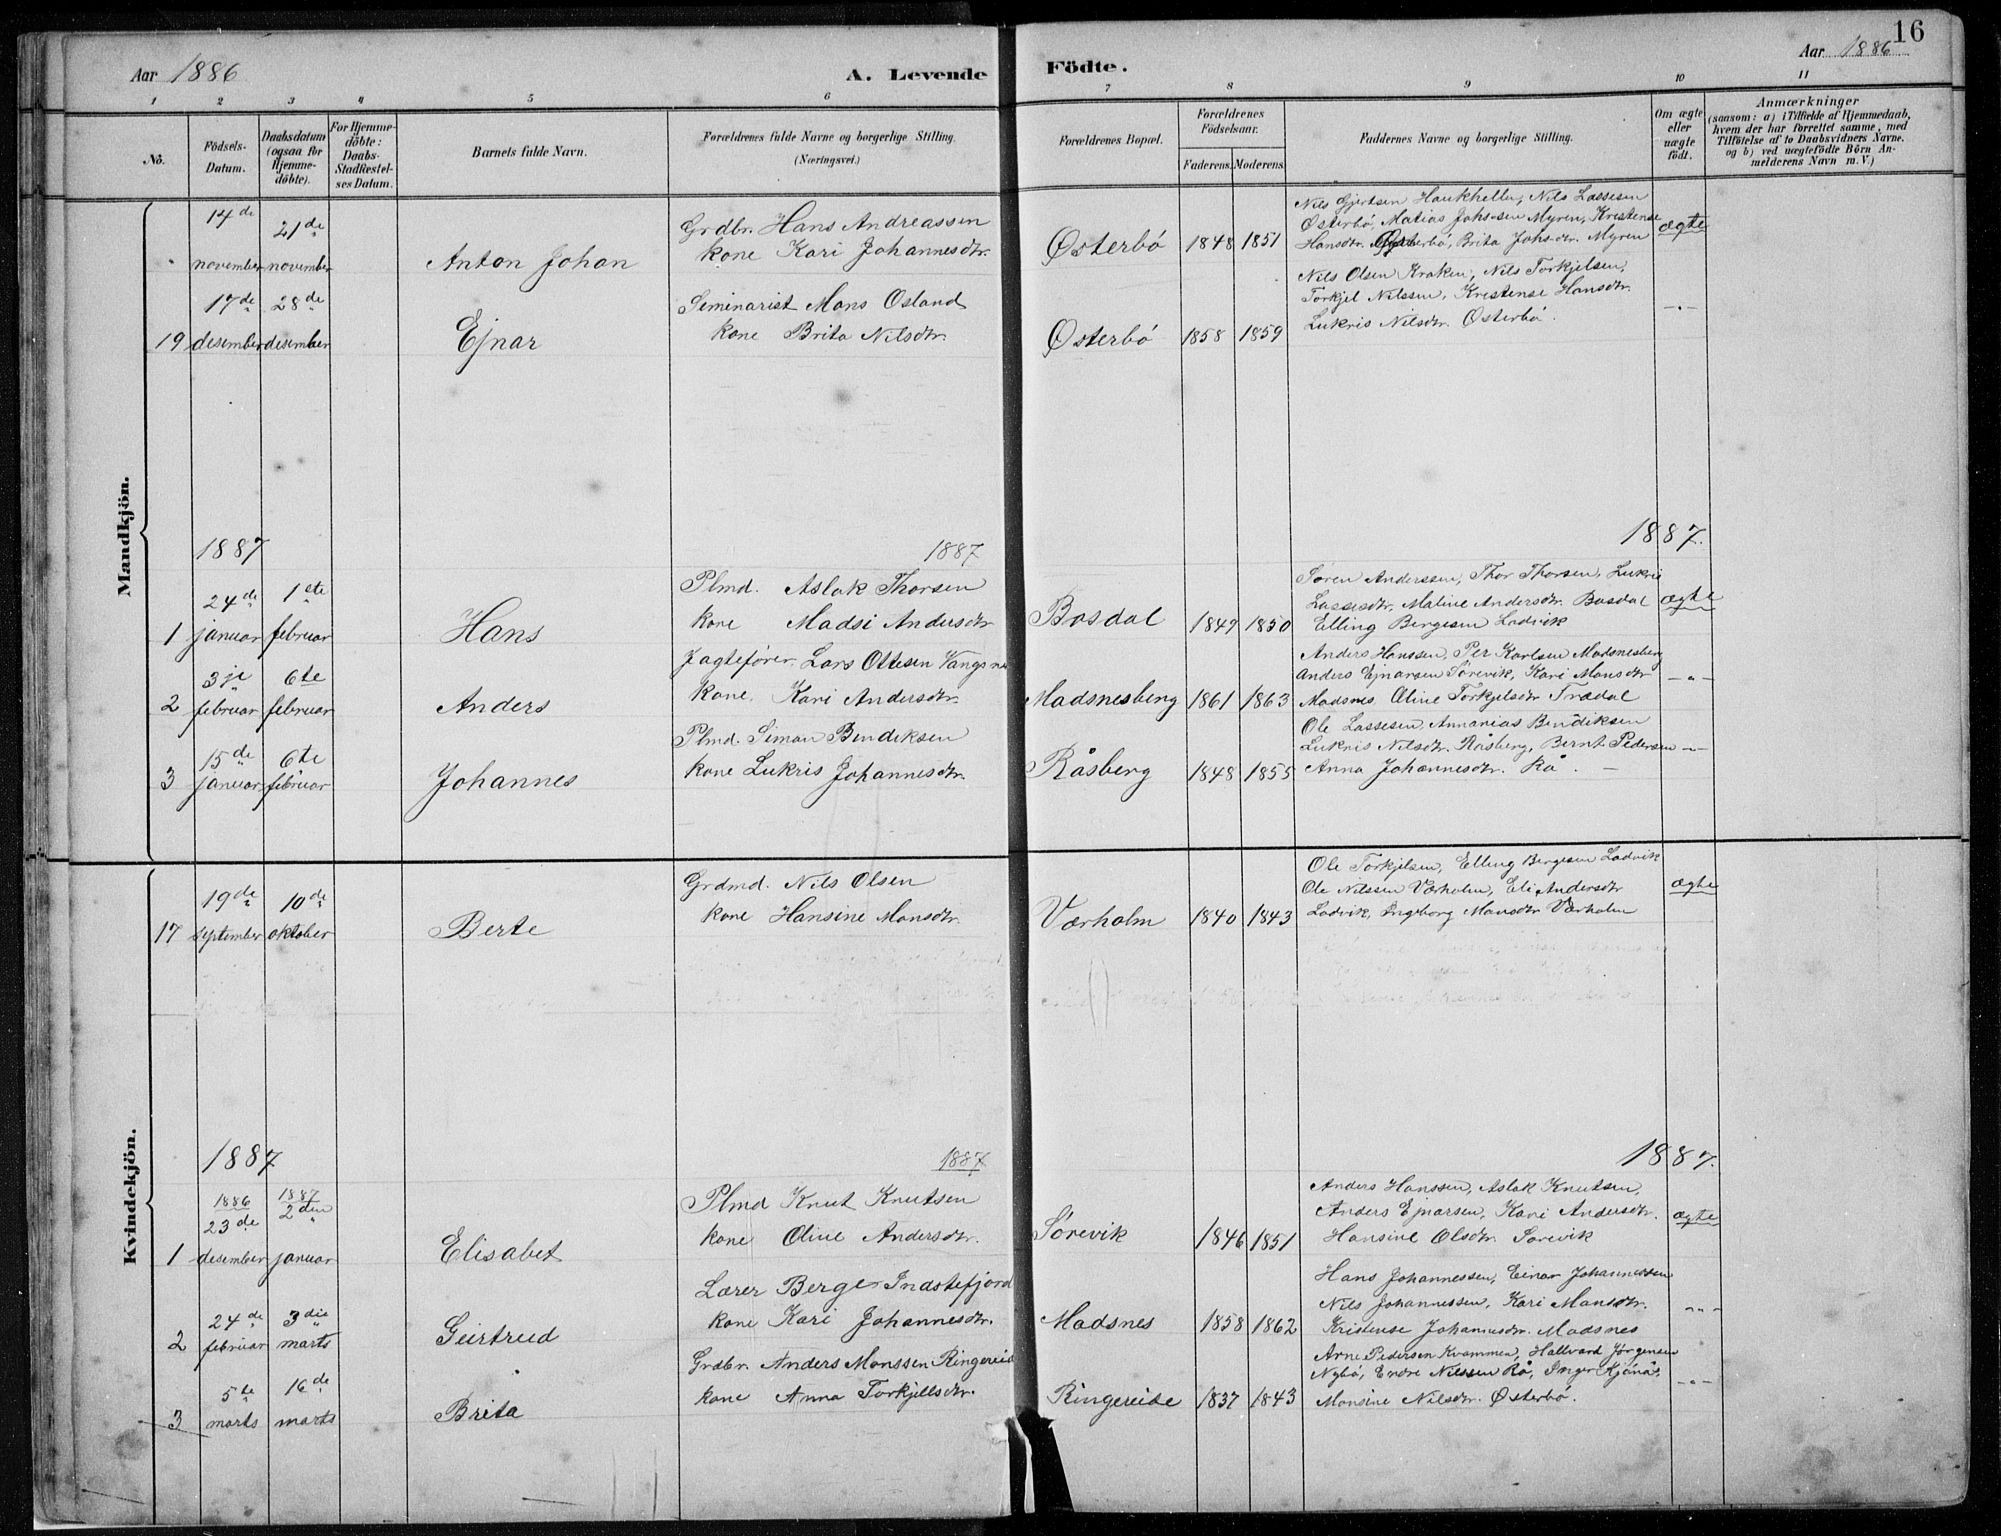 16
Aar 1886
A. Levende Födte.
Aar 1886
1 2 3 4 5 6 7 8 9 10 11
No.
Födsels-Datum.
Daabsdatum (ogsaa for Hjemmedöbte).
For Hjemmedöbte: Daabs-Stadfæstelses Datum.
Barnets fulde Navn.
Forældrenes fulde Navne og borgerlige Stilling.
(Næringsvei.)
Forældrenes Bopæl.
Forældrenes Födselsaar.
Faderens. Moderens.
Faddernes Navne og borgerlige Stilling.
Om ægte eller uægte födt.
Anmærkninger
(saasom: a) i Tilfælde af Hjemmedaab, hvem der har forrettet samme, med Tilföielse af to Daabsvidners Navne. og b) ved uægtefödte Börn Anmelderens Navn m. V.)
Mandkjön.
14de november 21de november Anton Johan
Grdbr. Hans Andreassen
kone Kari Johannesdtr.
Østerbö 1848 1851
Nils Gjertsen Haukhelle, Nils Lassesen
Østerbö, Matias Johs-sen Myren, Kristense
Hansdtr. Østerbö, Brita Johsdtr. Myren
ægte
19 17de desember 28de desember Ejnar
Seminarist Mons Osland
kone Brita Nilsdtr.
Østerbö 1858 1859
Nils Olsen Kraken, Nils Torkjelsen,
Torkjel Nilssen, Kristense Hansdtr.
Lukris Nilsdtr. Østerbö.
-"-
1887 1887 1887.
1 24de januar 1ste februar Hans
Plmd. Aslak Thorsen
kone Madsi Andersdtr
Bosdal 1849 1850
Sören Anderssen, Thor Thorsen, Lukris
Lassesdtr, Maline Andersdtr. Bosdal
Elling Bergesen Ladvik
ægte
2 3je februar 6te februar Anders
Jagtefører. Lars Ottesen Vangsnes
kone. Kari Andersdtr.
Madsnesberg 1861 1863
Anders Hanssen, Per Karlsen Madsnesberg
Anders Ejnarsen Sörevik, Kari Monsdtr
Madsnes Oline Torkjelsdtr Trædal
-"-
3 15de januar 6te februar Johannes
Plmd. Simon Bendiksen
kone Lukris Johannesdtr.
Råsberg 1848 1855
Ole Lassesen, Annanias Bendiksen
Lukris Nilsdtr. Råsberg, Bernt Pedersen
Anna Johannesdtr. Rå. -
-"-
Kvindekjön.
17 19de september 10de oktober Berte
Grdmd. Nils Olsen
kone Hansine Monsdtr.
Værholm 1840 1843
Ole Torkjelsen, Elling Bergesen Ladvik
Ole Nilssen Værholm, Eli Andersdtr
Ladvik, Ingeborg Monsdtr Værholm
ægte
1887 1887 1887.
1 1886 23de desember 1887 2den januar Elisabet
Plmd Knut Knutsen
kone Oline Andersdtr.
Sörevik 1846 1851
Anders Hanssen, Aslak Knutsen,
Anders Ejnarsen, Kari Andersdtr.
Hansine Olsdtr. Sorevik
ægte
2 24de februar 3die marts Geirtrud
Lærer Berge Indstefjord
kone Kari Johannesdtr.
Madsnes 1858 1862
Hans Johannessen, Einar Johannessen
Nils Johannessen, Kari Monsdtr.
Kristense Johannesdtr. Madsnes
-"-
3 5te marts 16de marts Brita
Grdbr. Anders Monssen Ringereid
kone Anna Torkjellsdtr.
Ringereide 1837 1843
Arne Pedersen Kvammen, Hallvard Jörgensen
Nybö, Endre Nilssen Rå, Inger Kjönås,
Monsine Nilsdtr. Østerbö.
-"-